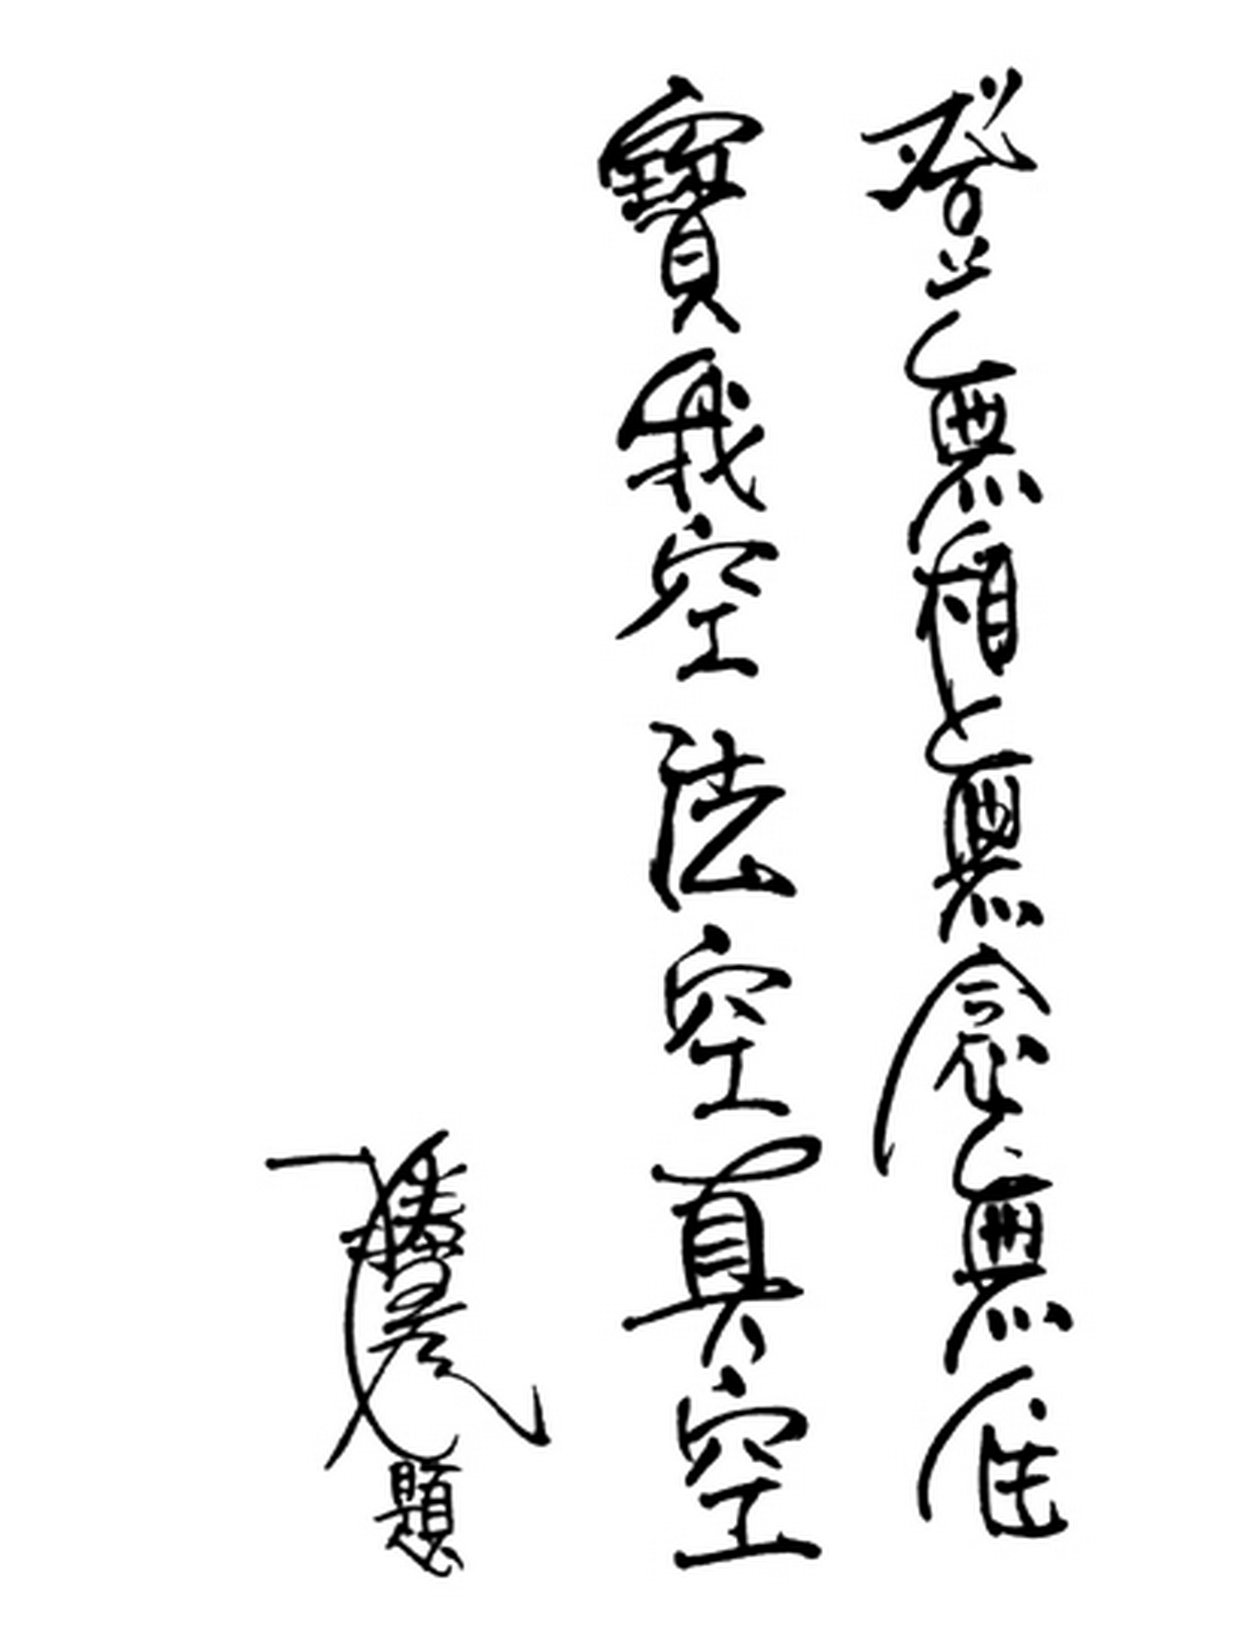 登無相之無念無住
寶我空法空真空
題